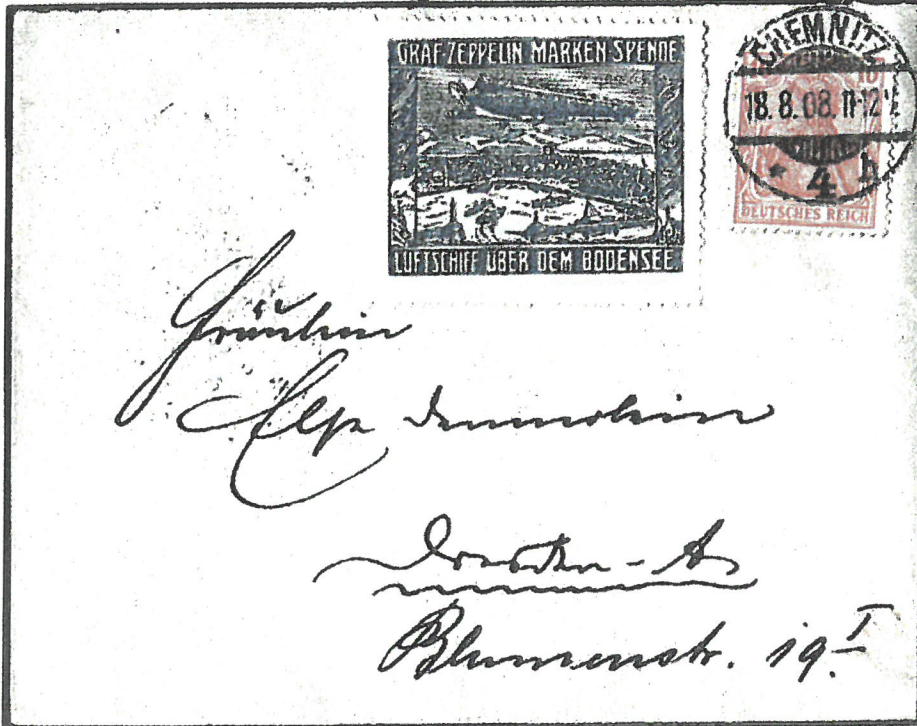 GRAF ZEPPELIN MARKEN-SPENDE
LUFTSCHIFF ÜBER DEM BODENSEE
CHEMNITZ
18.8.08. 11-12
* 4 h
10
DEUTSCHES REICH
Fräulein
Dresden-A.
Blumenstr. 19 I